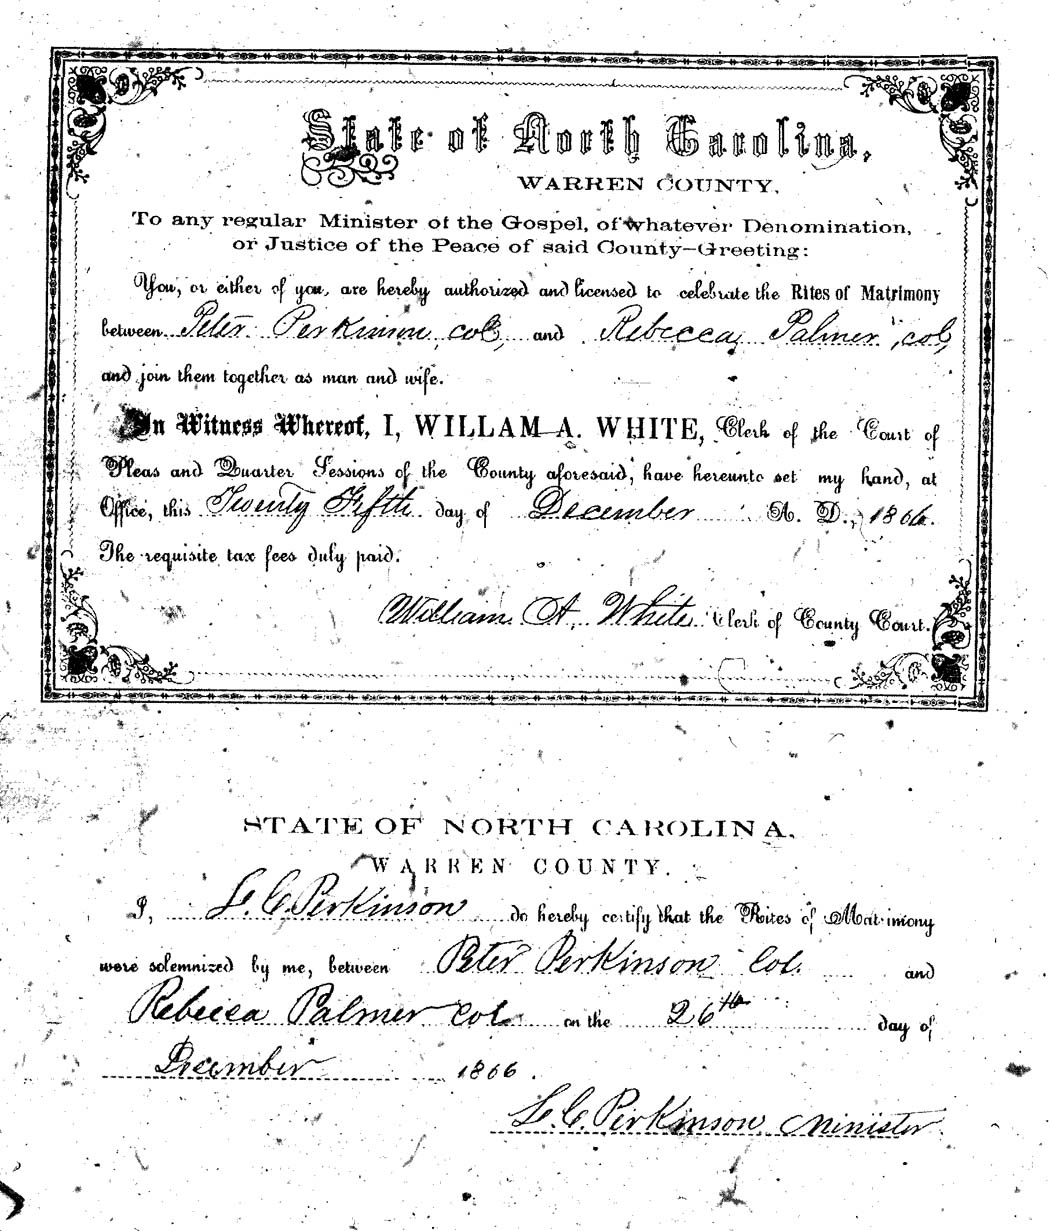 State of North Carolina,
WARREN COUNTY.
To any regular Minister of the Gospel, of whatever Denomination,
or Justice of the Peace of said County—Greeting:
You, or either of you, are hereby authorized and licensed to celebrate the Rites of Matrimony
between Peter Perkinson, col, and Rebecca Palmer, col,
and join them together as man and wife.
In Witness Whereof, I, WILLAM A. WHITE, Clerk of the Court of
Pleas and Quarter Sessions of the County aforesaid, have hereunto set my hand, at
Office, this Twenty Fifth day of December A. D., 1866.
The requisite tax fees duly paid.
William A. White Clerk of County Court.
STATE OF NORTH CAROLINA,
WARREN COUNTY.
I, L. C. Perkinson do hereby certify that the Rites of Matrimony
were solemnized by me, between Peter Perkinson Col. and
Rebecca Palmer Col on the 26th day of
December 1866.
L. C. Perkinson Minister